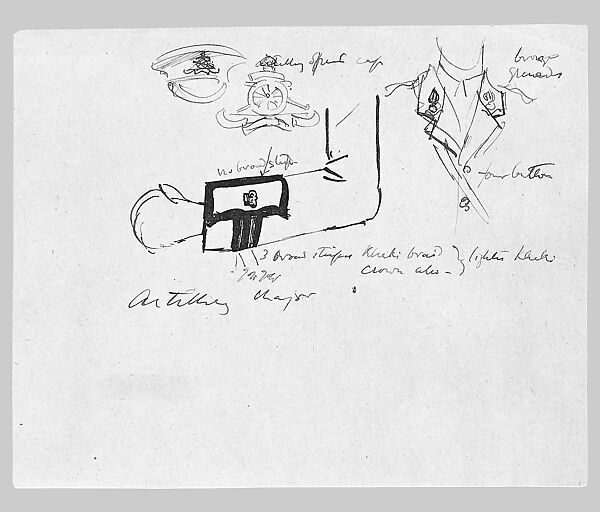 artillery cap
bronze
grenades
no broad stripe
four buttons
3 broad stripes Khaki braid } lighter Khaki
crown also -
Artillery Major